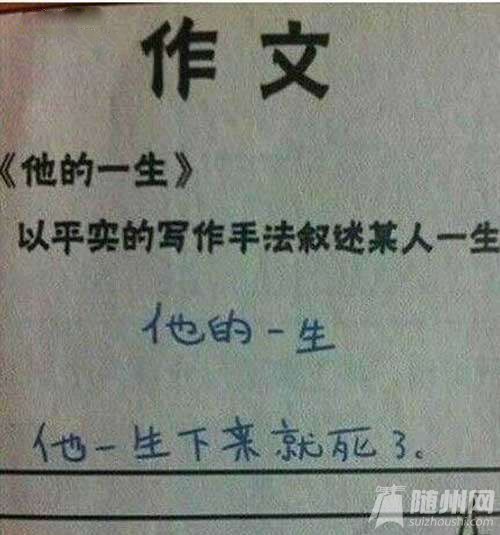 作文
《他的一生》
以平实的写作手法叙述某人一生
他的一生
他一生下来就死了。
随州网
suizhoushi.com